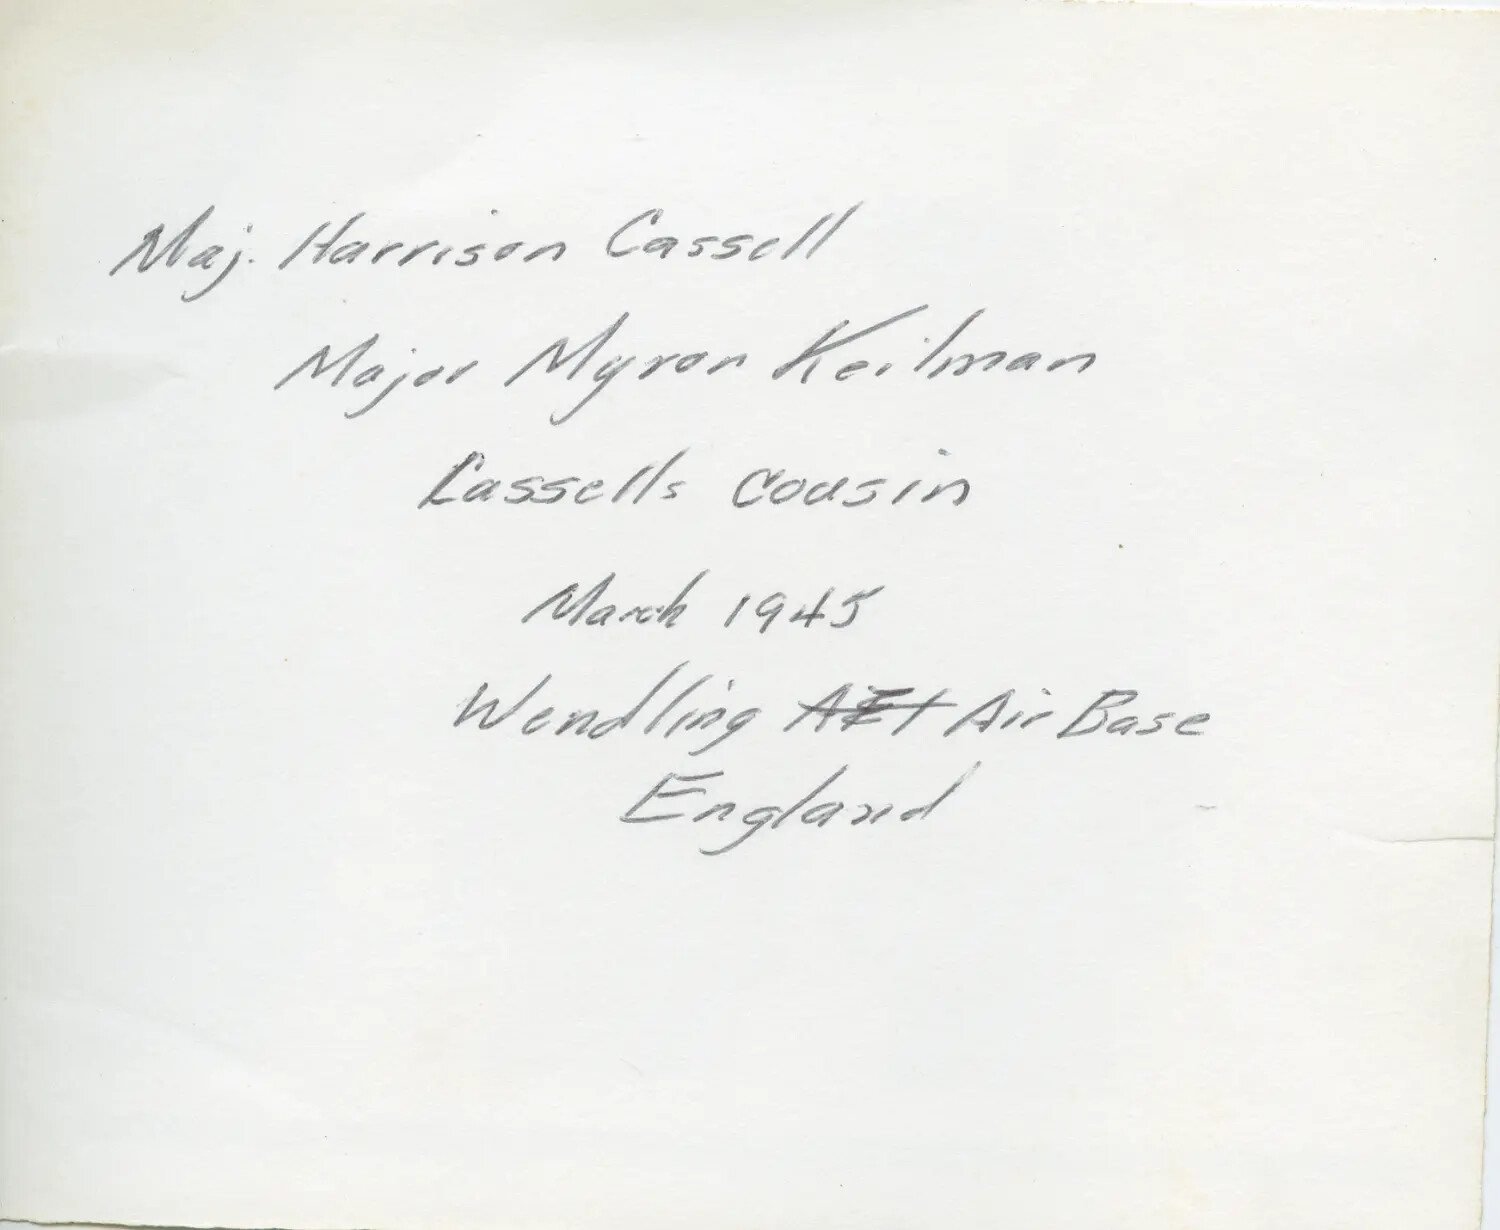 Maj. Harrison Cassell
Major Myron Keilman
Cassells cousin
March 1945
Wendling Air Base
England